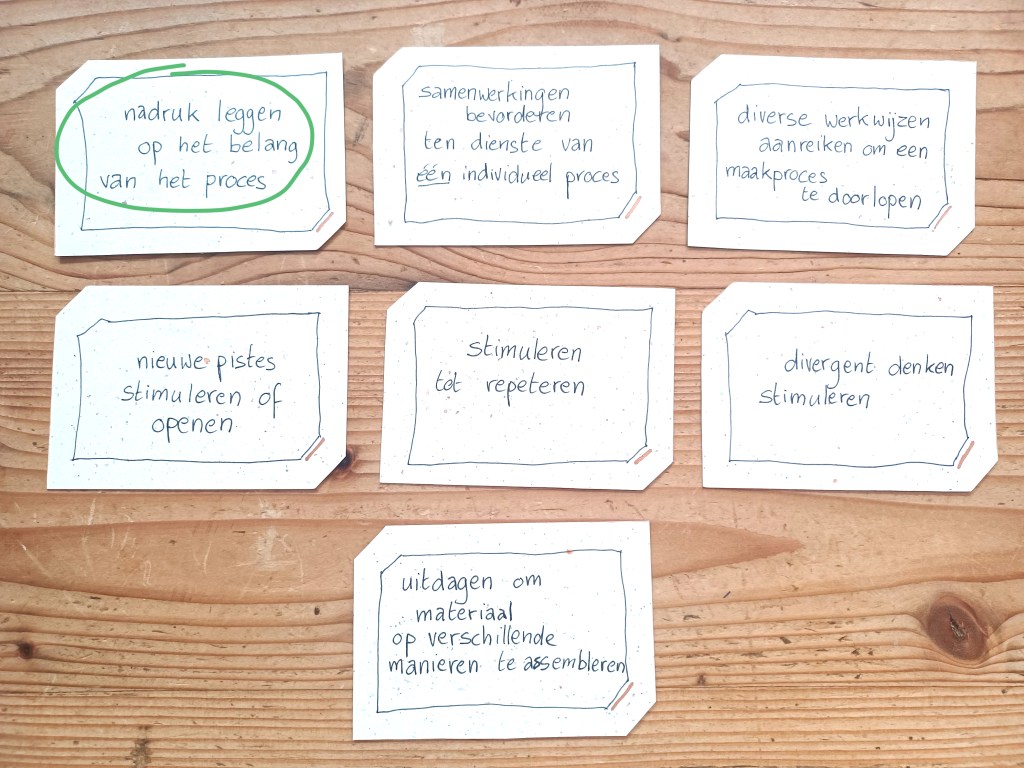 nadruk leggen
op het belang
van het proces
samenwerkingen
bevorderen
ten dienste van
één individueel proces
diverse werkwijzen
aanreiken om een
maakproces
te doorlopen
nieuwe pistes
stimuleren of
openen
stimuleren
tot repeteren
divergent denken
stimuleren
uitdagen om
materiaal
op verschillende
manieren te assembleren